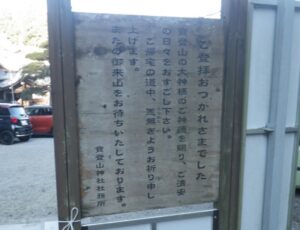 ご登拝おつかれさまでした
宝登山の大神様のご神徳を賜り、ご清安
の日々をおすごし下さい。
ご帰宅の道中、恙無きようお祈り申し
上げます。
またの御来山をお待ちいたしております。
宝登山神社社務所